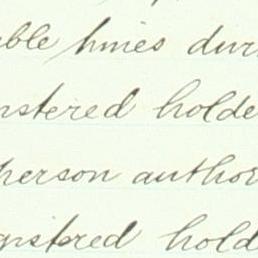 able times dur
istered holde
person author
gistered hold